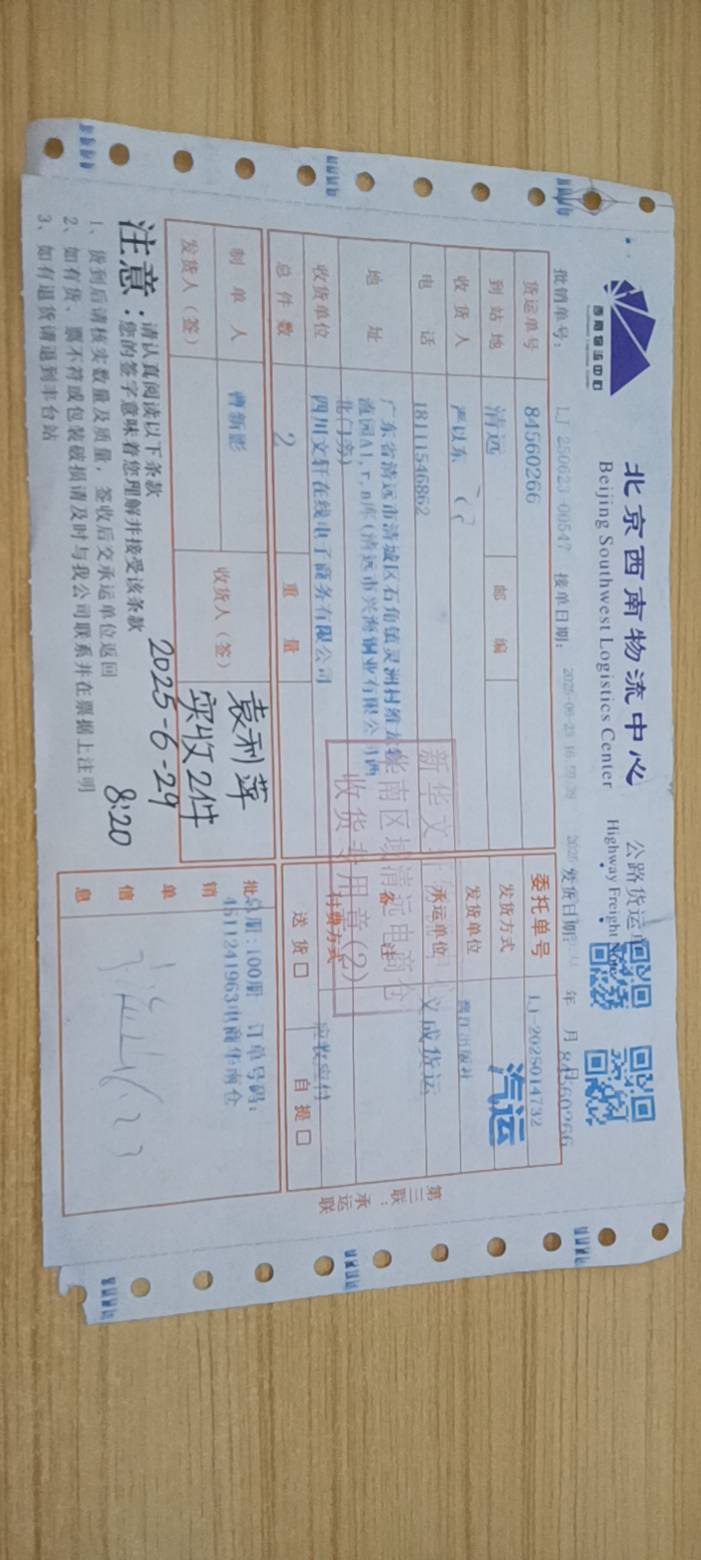 西南物流中心
北京西南物流中心
Beijing Southwest Logistics Center
公路货运
Highway Freight
批销单号: LJ 250623-00547 接单日期: 2025-06-23 发货日期: 年 月 日
84560266
货运单号 84560266 委托单号 LJ-2025014732
到站地 清远 邮编 发货方式 汽运
收货人 严以东 发货单位 出版社
电话 18111546862 承运单位 义成货运
地址 广东省清远市清城区石角镇灵洲村
园A1,r,n库(清远市兴海铜业有限公司西
北门旁)
备注
收货单位 四川文轩在线电子商务有限公司 付费方式 应收应付
总件数 2 重量 送货□ 自提□
新华文
华南区域清远电商仓
收货专用章(2)
制单人 曹新影 收货人(签) 袁利萍
实收2件
发货人(签)
2025-6-29
8:20
批销单信息
总册:100册 订单号码:
4511241963电商华南仓
第三联:承运联
注意:请认真阅读以下条款
您的签字意味着您理解并接受该条款
1、货到后请核实数量及质量,签收后交承运单位返回
2、如有货、票不符或包装破损请及时与我公司联系并在票据上注明
3、如有退货请退到丰台站